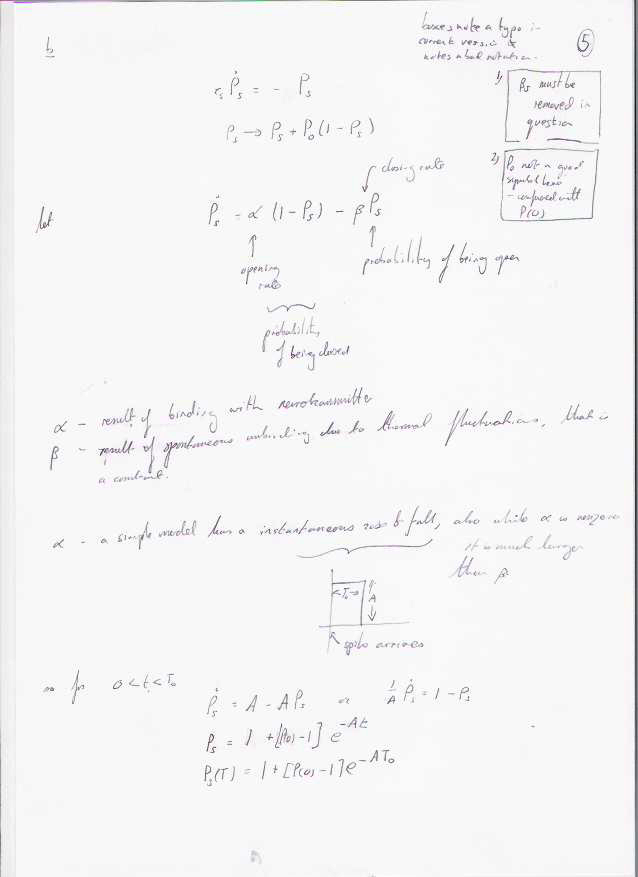 boxes note a typo in
current version of
notes about notation.
5
b
τ_s Ṗ_s = - P_s
P_s → P_s + P_0 (1 - P_s)
1) P_s must be
removed in
question
2) P_0 not a good
symbol
- confused with
P(0)
closing rate
let
Ṗ_s = α (1 - P_s) - β P_s
opening
rate
probability of being open
probability
of being closed
α - result of binding with neurotransmitter
β - result of spontaneous unbinding due to thermal fluctuations, that is
a constant.
α - a simple model has a instantaneous rise & fall, also while α is nonzero
it is much larger
than β
< T_0 >
A
spike arrives
so for 0 < t < T_0
Ṗ_s = A - A P_s or 1/A Ṗ_s = 1 - P_s
P_s = 1 + [P(0) - 1] e^{-At}
P_s(T) = 1 + [P(0) - 1] e^{-AT_0}